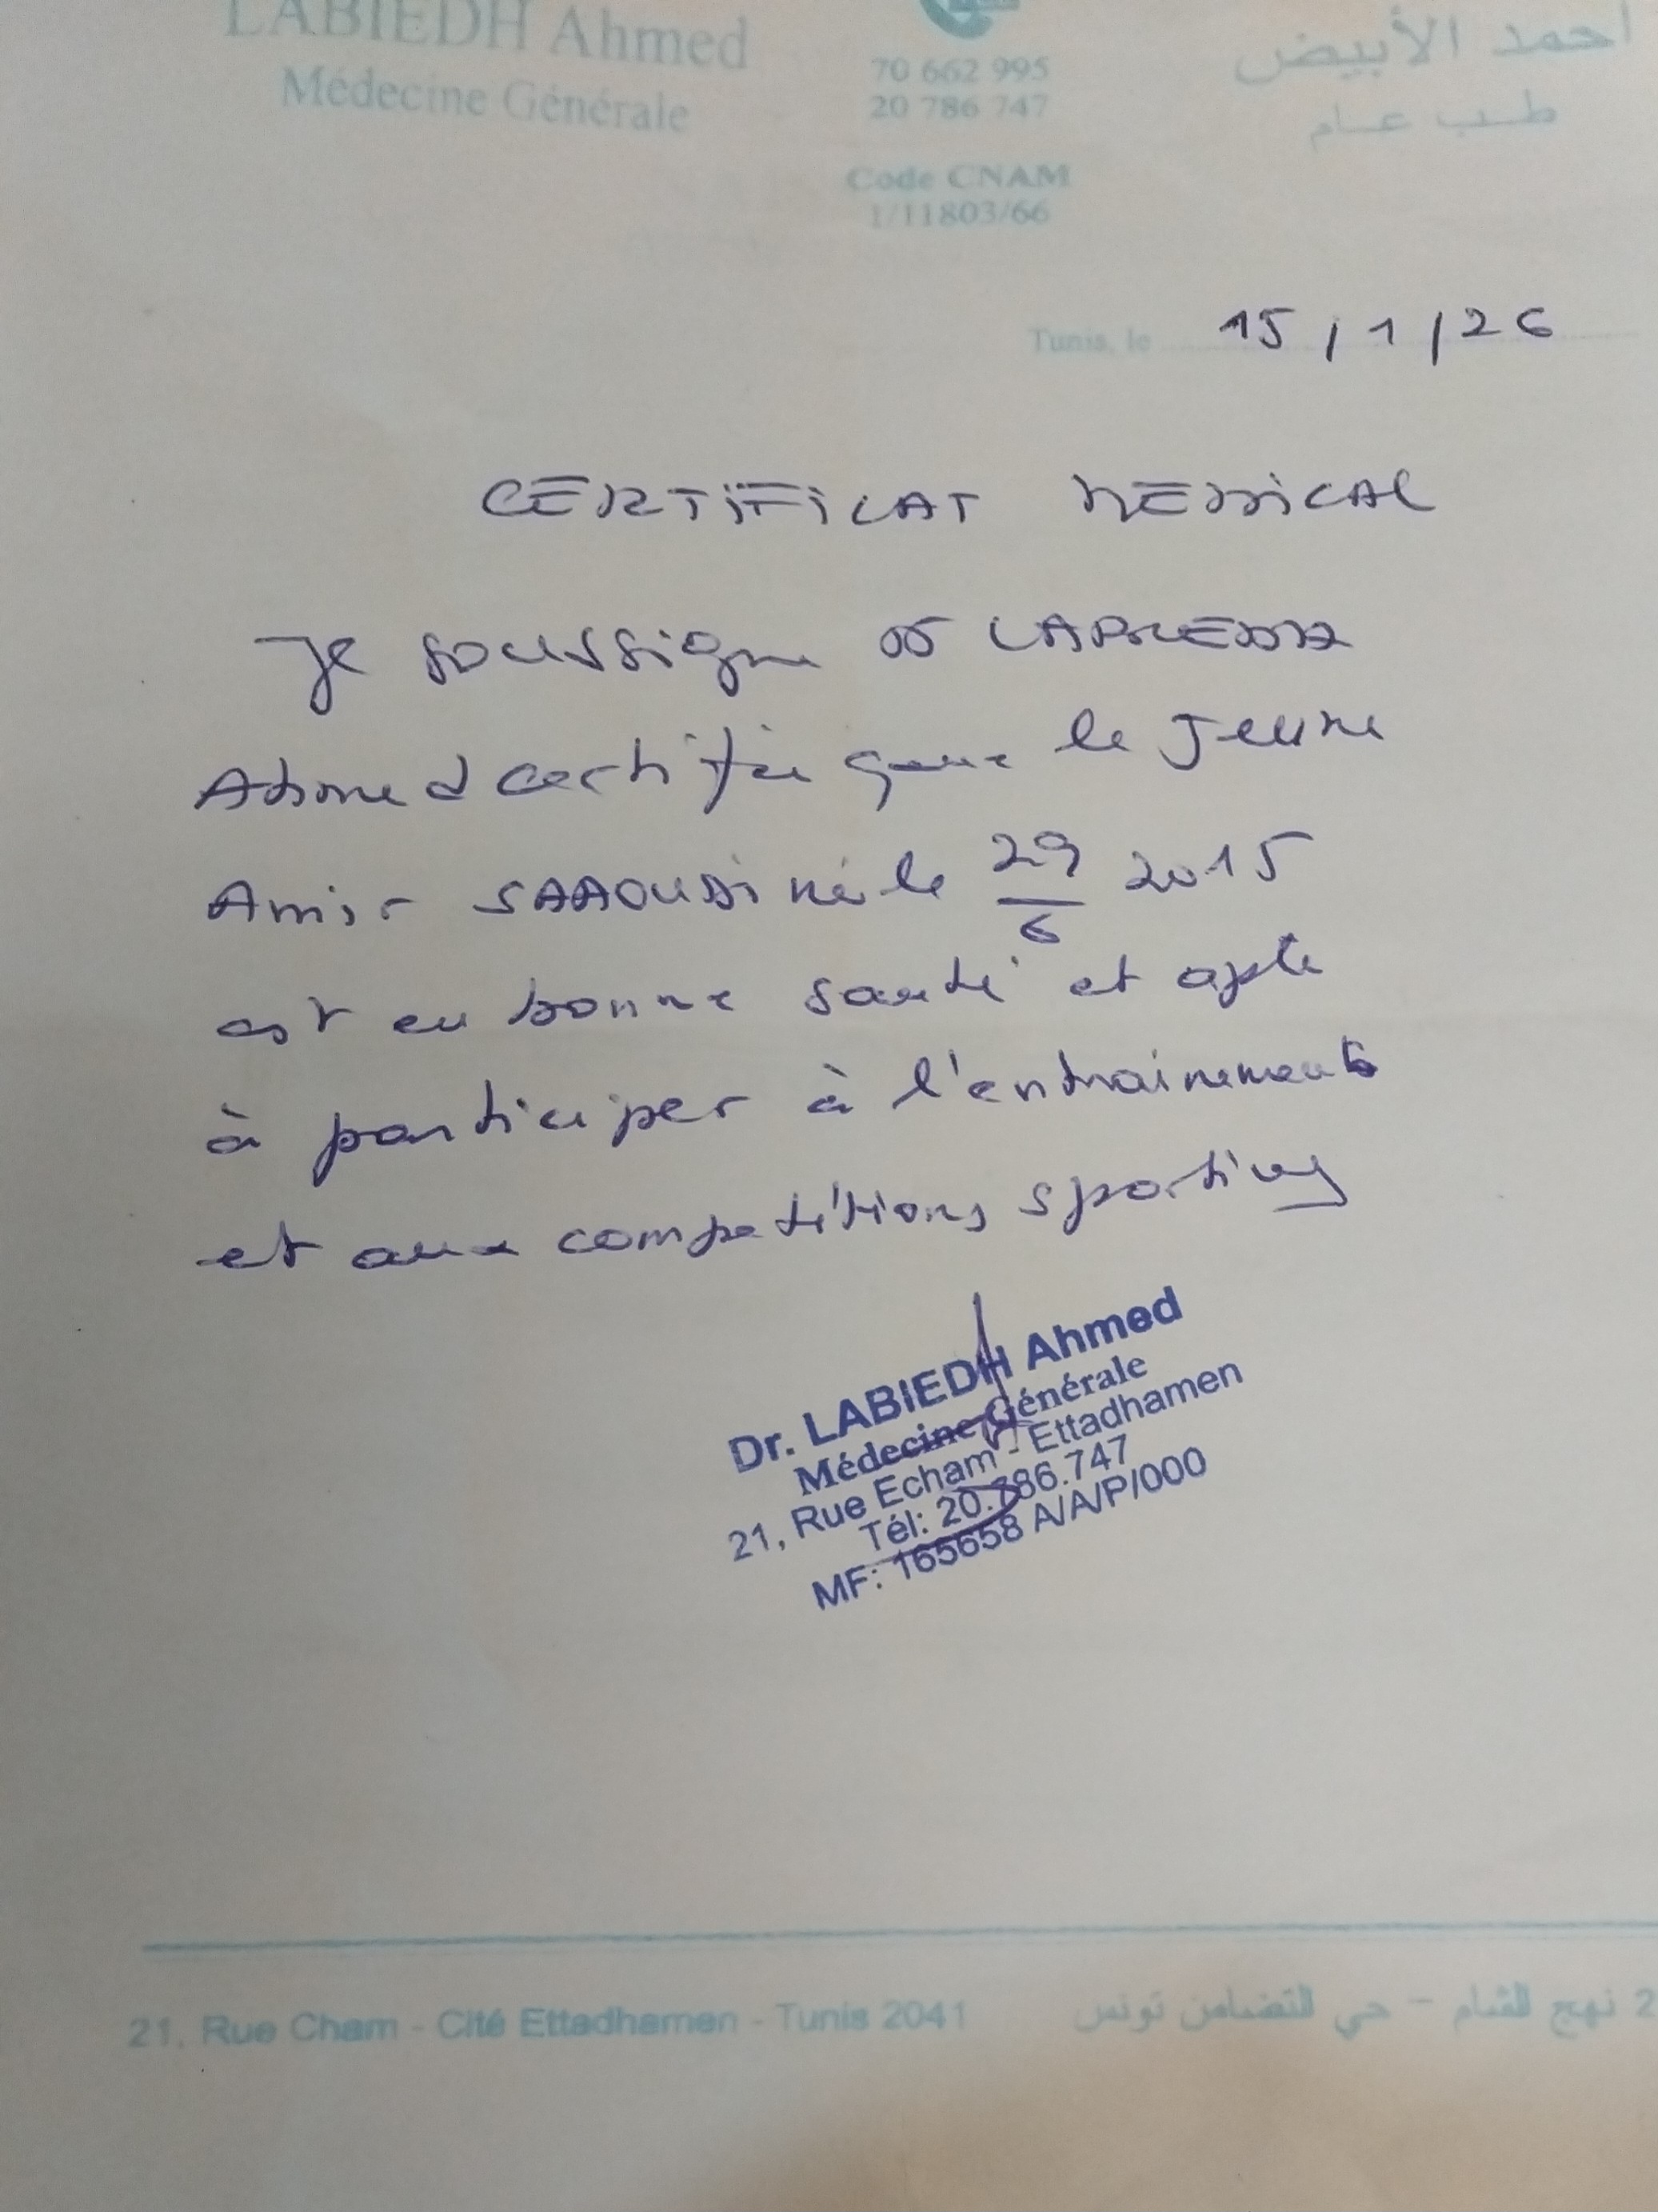 LABIEDH Ahmed
Médecine Générale
70 662 995
20 786 747
Code CNAM
1/11803/66
أحمد الأبيض
طب عام
Tunis, le 15/1/26
CERTIFICAT MEDICAL
Je soussigné Dr LABIEDH
Ahmed certifie que le Jeune
Amir SAAOUDI né le 29/6 2015
est en bonne santé et apte
à participer à l'entrainements
et aux compétitions sportives
Dr. LABIEDH Ahmed
Médecine Générale
21, Rue Echam - Ettadhamen
Tél: 20.786.747
MF: 165658 A/A/P/000
21, Rue Cham - Cité Ettadhamen - Tunis 2041
2 نهج الشام – حي التضامن تونس